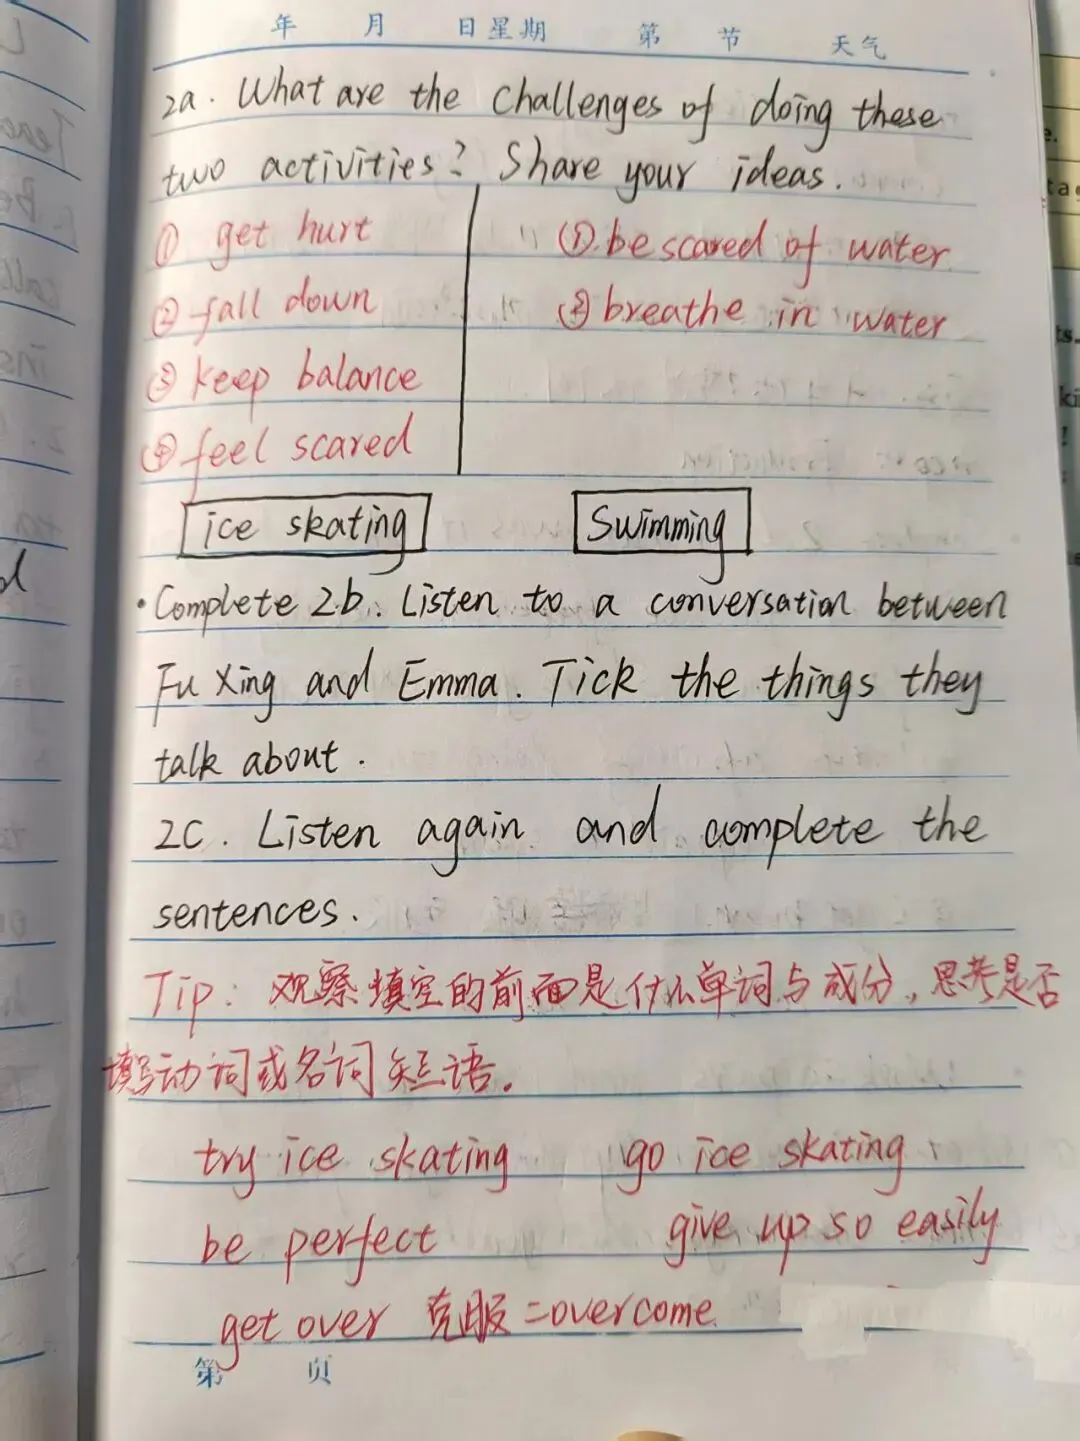 年 月 日 星期 第 节 天气
2a. What are the challenges of doing these
two activities? Share your ideas.
① get hurt
② fall down
③ keep balance
④ feel scared
① be scared of water
② breathe in water
ice skating
Swimming
· Complete 2b. Listen to a conversation between
Fu Xing and Emma. Tick the things they
talk about.
2C. Listen again and complete the
sentences.
Tip: 观察填空的前面是什么单词与成分,思考是否
填写动词或名词短语。
try ice skating go ice skating
be perfect give up so easily
get over 克服=overcome
第 页